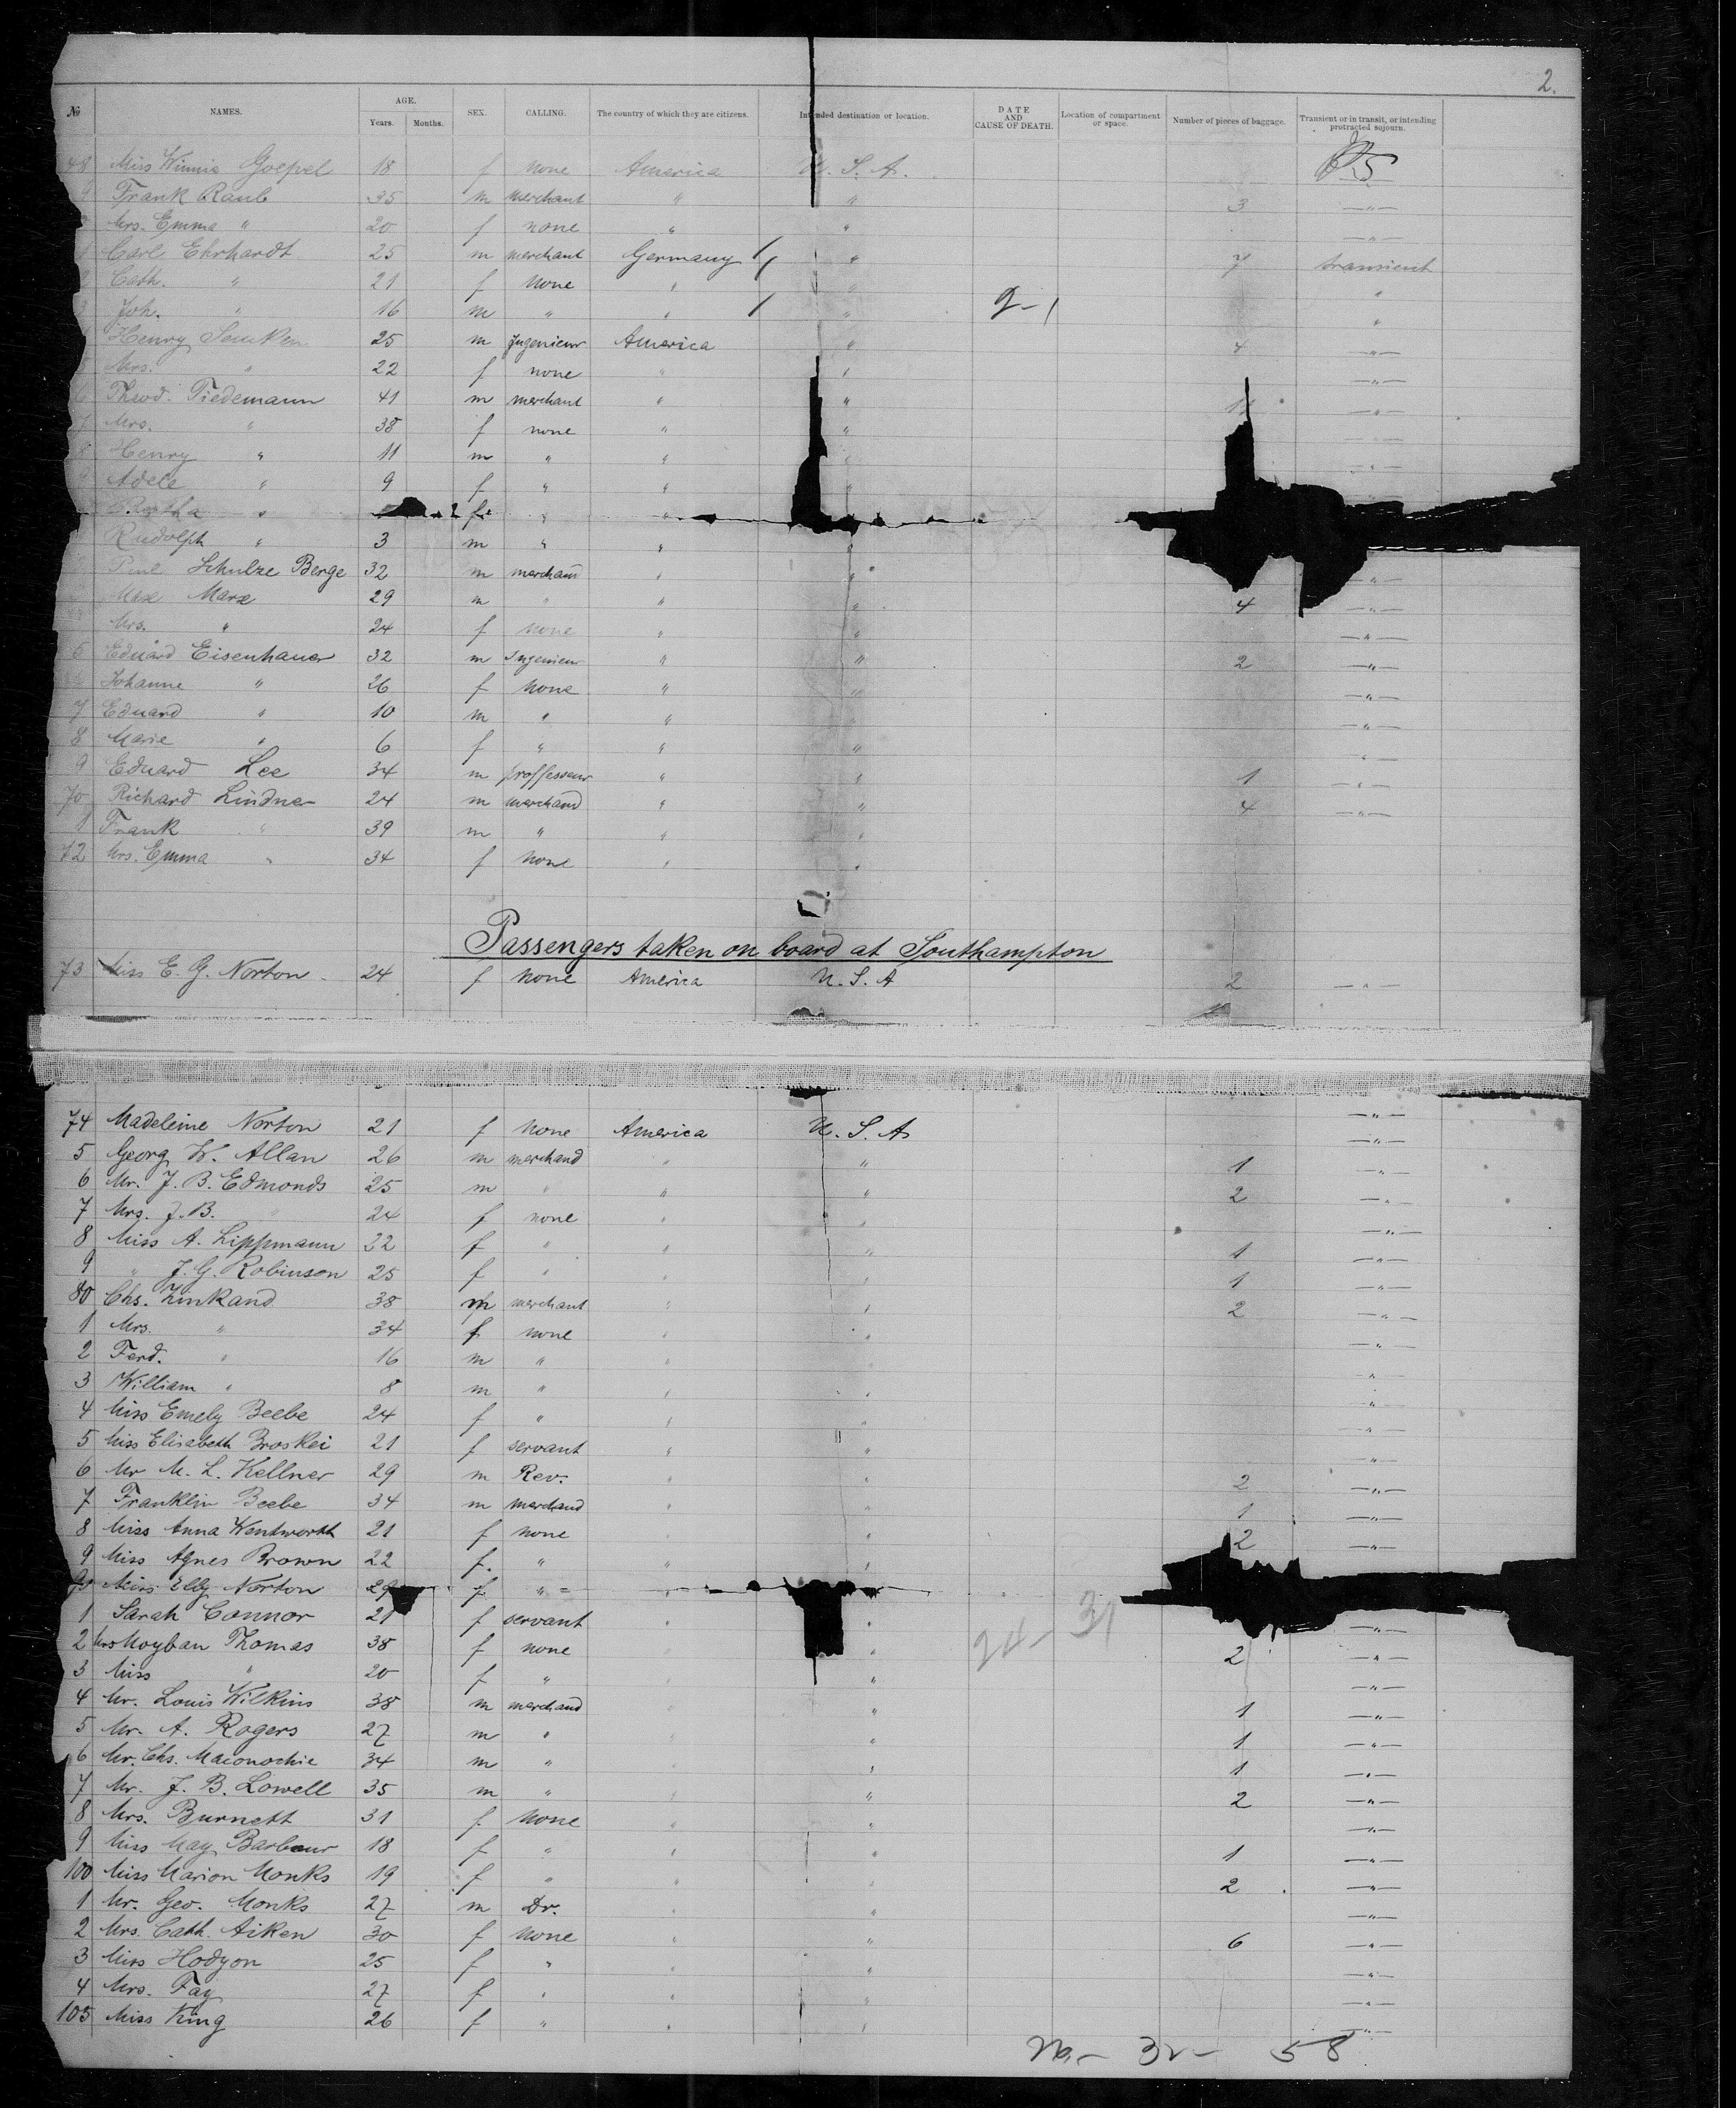 2.
№ NAMES. AGE. Years. Months. SEX. CALLING. The country of which they are citizens. Intended destination or location. DATE AND CAUSE OF DEATH. Location of compartment or space. Number of pieces of baggage. Transient or in transit, or intending protracted sojourn.
48 Miss Winnie Goepel 18 f none America U. S. A.
9 Frank Raub 35 m merchant " " 3 —"—
Mrs. Emma " 20 f none " " —"—
1 Carl Ehrhardt 25 m merchant Germany " 7 transient
2 Cath. " 21 f none " " "
3 Joh. " 16 m " " " 2-1 "
Henry Semken 25 m Ingenieur America " 4 —"—
5 Mrs. " 22 f none " " —"—
6 Theod. Tiedemann 41 m merchant " " 11 —"—
7 Mrs. " 38 f none " " —"—
8 Henry " 11 m " " " —"—
9 Adele " 9 f " " "
" f " "
Rudolph " 3 m " " "
Schulze Berge 32 m merchand " " —"—
Max Marx 29 m " " " 4 —"—
Mrs. " 24 f none " " —"—
5 Eduard Eisenhauer 32 m Ingenieur " " 2 —"—
Johanne " 26 f none " " —"—
7 Eduard " 10 m " " " —"—
8 Marie " 6 f " " " —"—
9 Eduard Lee 34 m proffesseur " " 1 —"—
70 Richard Lindner 24 m merchand " " 4 —"—
1 Frank " 39 m " " "
72 Mrs. Emma " 34 f none " "
Passengers taken on board at Southampton
73 Miss E. G. Norton 24 f none America U. S. A 2 —"—
74 Madeleine Norton 21 f none America U. S. A —"—
5 Georg W. Allan 26 m merchand " " 1 —"—
6 Mr. J. B. Edmonds 25 m " " " 2 —"—
7 Mrs. J. B. " 24 f none " " —"—
8 Miss A. Lippmann 22 f " " " 1 —"—
9 " J. G. Robinson 25 f " " " 1 —"—
80 Chs. Zinkand 38 m merchant " " 2 —"—
1 Mrs. " 34 f none " " —"—
2 Ferd. " 16 m " " " —"—
3 William " 8 m " " " "
4 Miss Emely Beebe 24 f " " " —"—
5 Miss Elisabeth Broskei 21 f servant " " —"—
6 Mr M. L. Kellner 29 m Rev. " " 2 —"—
7 Franklin Beebe 34 m merchand " " 1 —"—
8 Miss Anna Wentworth 21 f none " " 2 —"—
9 Miss Agnes Brown 22 f. " " "
90 Miss Elly Norton 29 f " "
1 Sarah Connor 21 f servant " " —"—
2 Mrs Moyban Thomas 38 f none " " 24 - 31 2 —"—
3 Miss " 20 f " " " —"—
4 Mr. Louis Wilkins 38 m merchand " " 1 —"—
5 Mr. A. Rogers 27 m " " " 1 —"—
6 Mr. Chs. Maconochie 34 m " " " 1 —"—
7 Mr. J. B. Lowell 35 m " " " 2 —"—
8 Mrs. Burnett 31 f none " " —"—
9 Miss May Barbour 18 f " " " 1 —"—
100 Miss Marion Monks 19 f " " " 2 —"—
1 Mr. Geo. Monks 27 m Dr. " " —"—
2 Mrs. Cath. Aiken 30 f none " " 6 —"—
3 Miss Hodgon 25 f " " " —"—
4 Mrs. Fay 27 f " " " —"—
105 Miss King 26 f " " " —"—
26 - 32 - 58